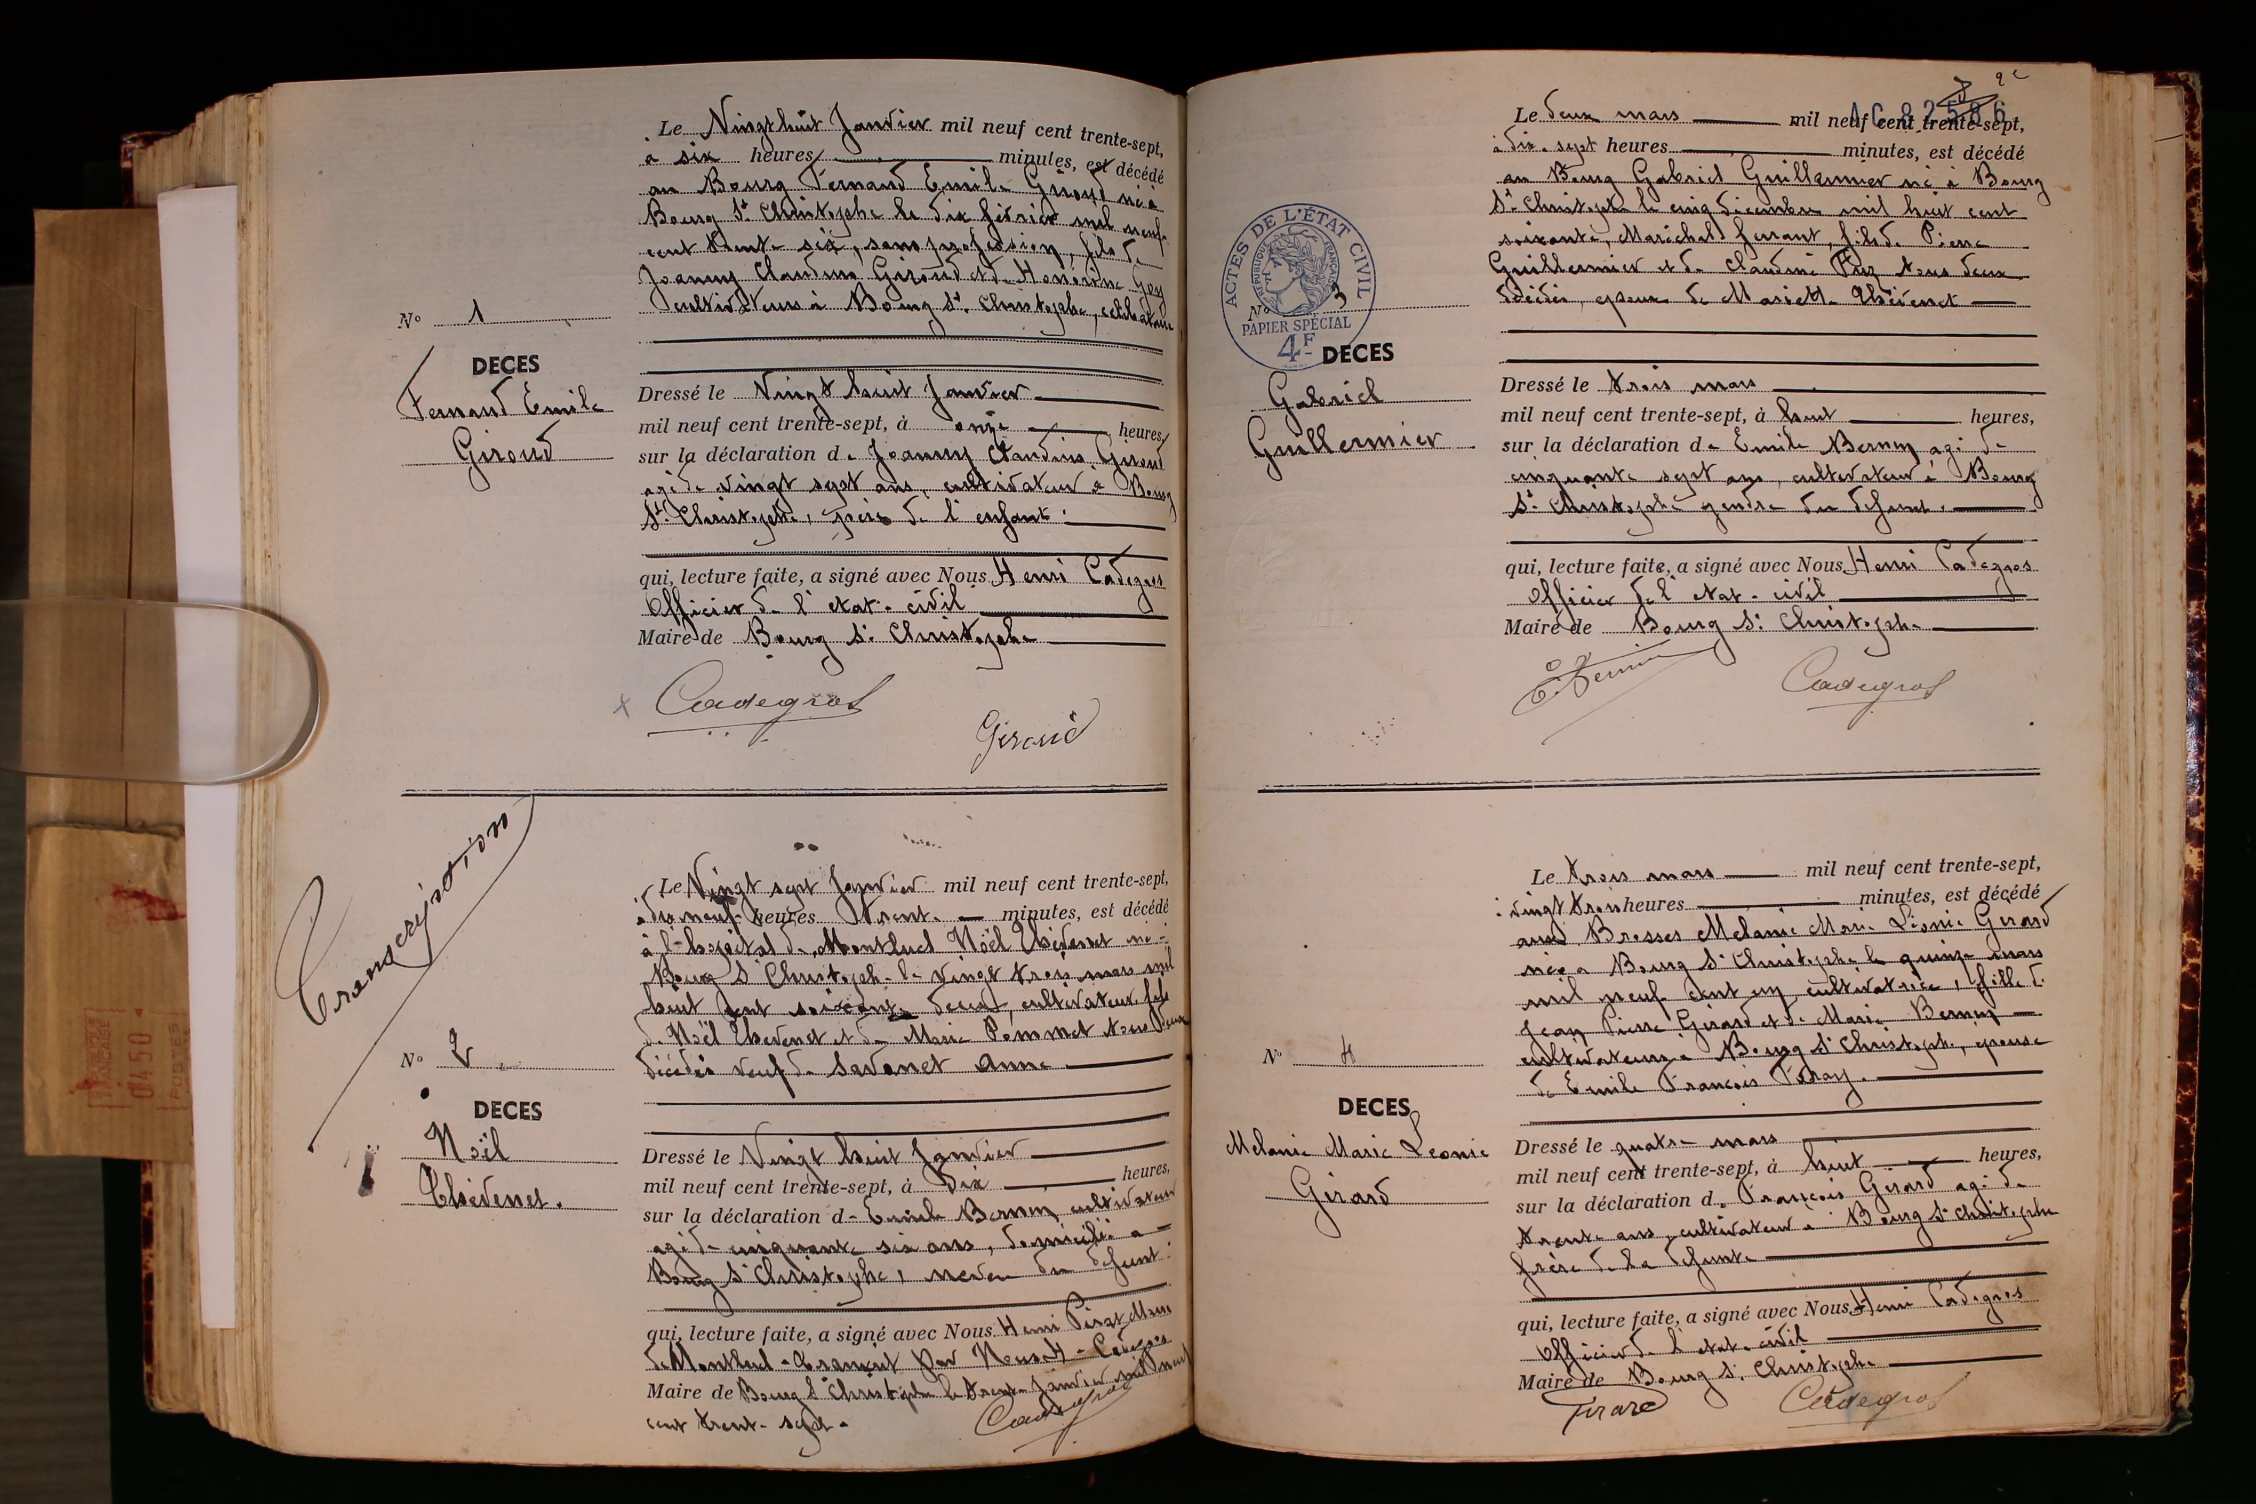 Le Vingt huit Janvier mil neuf cent trente-sept,
à six heures minutes, est décédé
au Bourg Fernand Emile Giroud né à
Bourg St Christophe le dix février mil neuf
cent trente six, sans profession, fils de
Joanny Claudius Giroud et de Honorine Gey
cultivateurs à Bourg St Christophe, célibataire
No 1
DECES
Fernand Emile
Giroud
Dressé le Vingt huit Janvier
mil neuf cent trente-sept, à onze heures,
sur la déclaration de Joanny Claudius Giroud
agé de vingt sept ans, cultivateur à Bourg
St Christophe, père de l'enfant.
qui, lecture faite, a signé avec Nous Henri Cadegros
Officier de l'etat-civil
Maire de Bourg St Christophe
Cadegros
Giroud
Transcription
Le Vingt sept Janvier mil neuf cent trente-sept,
à dix neuf heures trente minutes, est décédé
à l'hopital de Montluel Noël Thévenet né à
Bourg St Christophe le vingt trois mars mil
huit cent soixante deux, cultivateur, fils
de Noël Thevenet et de Marie Pommet tous deux
décédés veuf de Savonet Anne
No 2
DECES
Noël
Thévenet.
Dressé le Vingt huit Janvier
mil neuf cent trente-sept, à dix heures,
sur la déclaration de Emile Bernin cultivateur
agé de cinquante six ans, domicilié à
Bourg St Christophe, neveu du défunt.
qui, lecture faite, a signé avec Nous Henri Maire
de Montluel - Transcrit par Nous H - Cadegros
Maire de Bourg St Christophe le trente Janvier mil neuf
cent trente-sept.
Cadegros
2e
AC 82586
Le deux mars mil neuf cent trente-sept,
à dix-sept heures minutes, est décédé
au Bourg Gabriel Guillermier né à Bourg
St Christophe le cinq décembre mil huit cent
soixante, Maréchal ferrant, fils de Pierre
Guillermier et de Claudine tous deux
décédés, époux de Mariette Thévenet
ACTES DE L'ÉTAT CIVIL
RÉPUBLIQUE FRANÇAISE
PAPIER SPÉCIAL
4F
No 3
DECES
Gabriel
Guillermier
Dressé le trois mars
mil neuf cent trente-sept, à huit heures,
sur la déclaration de Emile Bernin agé de
cinquante sept ans, cultivateur à Bourg
St Christophe gendre du défunt.
qui, lecture faite, a signé avec Nous Henri Cadegros
Officier de l'etat-civil
Maire de Bourg St Christophe
E. Bernin
Cadegros
Le trois mars mil neuf cent trente-sept,
à vingt trois heures minutes, est décédé
aux Brosses Melanie Marie Léonie Girard
née à Bourg St Christophe le quinze mars
mil neuf cent un cultivatrice, fille de
Jean Pierre Girard et de Marie Bernin
cultivateurs à Bourg St Christophe, épouse
de Emile François
No 4
DECES
Melanie Marie Leonie
Girard
Dressé le quatre mars
mil neuf cent trente-sept, à huit heures,
sur la déclaration de François Girard agé de
trente ans, cultivateur à Bourg St Christophe
frère de la défunte
qui, lecture faite, a signé avec Nous Henri Cadegros
Officier de l'etat-civil
Maire de Bourg St Christophe
Girard
Cadegros
0450
POSTES